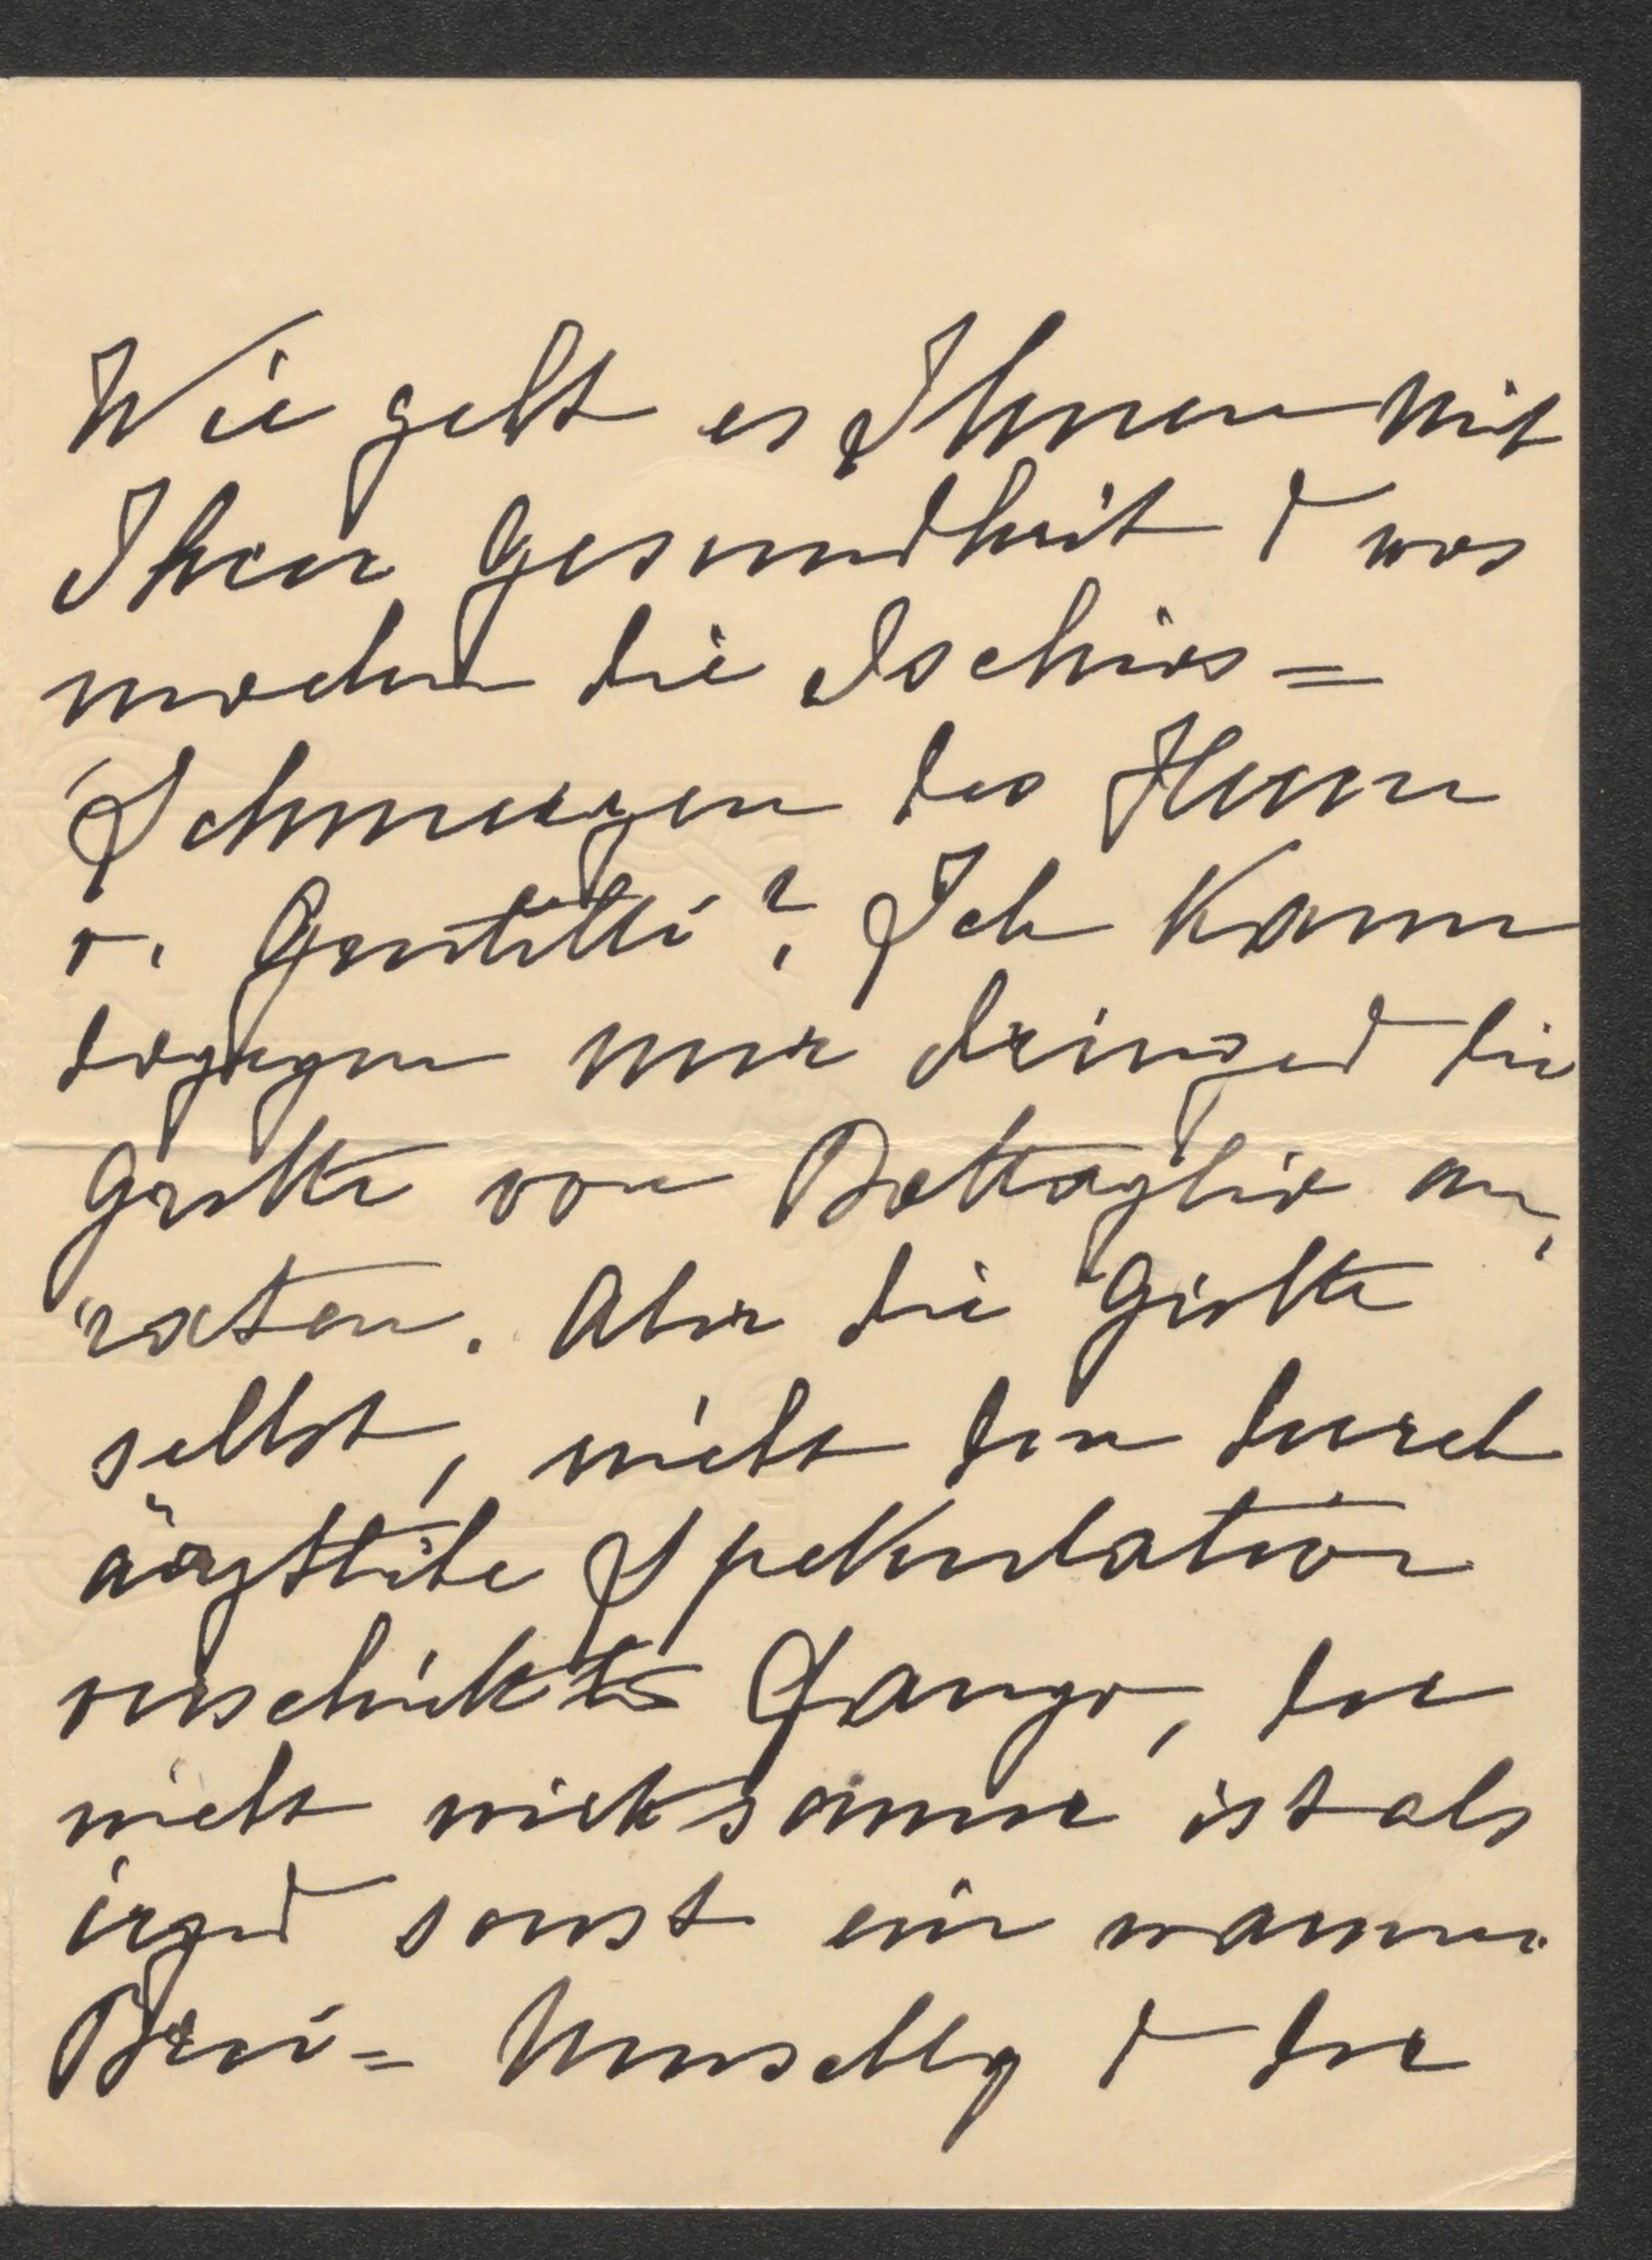 Wie geht es Ihnen mit
Ihrer Gesundheit & was
machen die Ischias=
Schmerzen des Herrn
v. Gentilli? Ich kann
dagegen nur dringend die
Grotte von Battaglia an,
raten. Aber die Grotte
selbst, nicht den durch
ärztliche Spekulation
verschickten Fango, der
nicht wirksamer ist als
irgend sonst ein warmer
Brei= Umschlag & der